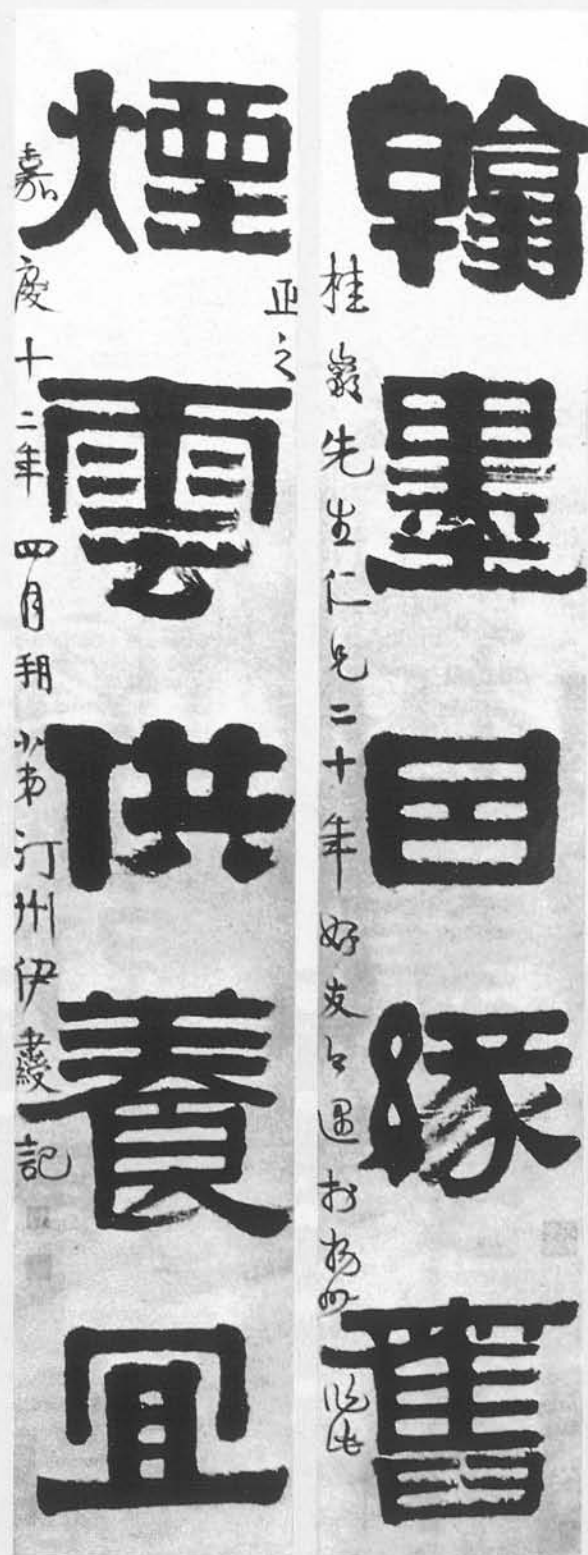 翰墨因緣舊
桂巖先生仁兄二十年好友今遇於揚州
正之
煙雲供養宜
嘉慶十二年四月朔小弟汀州伊秉綬記